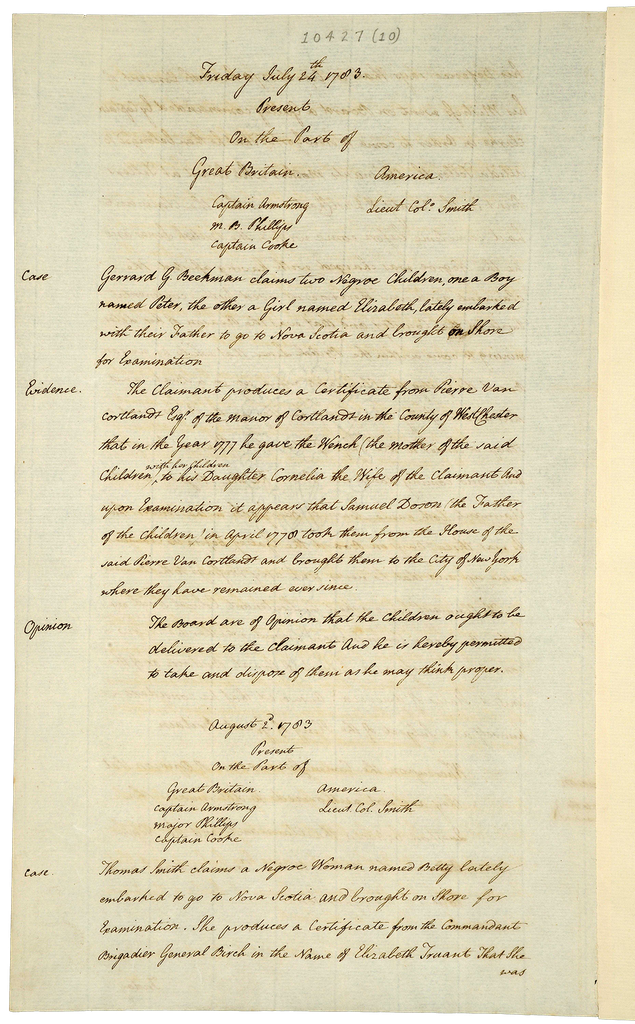 10427 (10)
Friday July 24th 1783.
Present
On the Part of
Great Britain. America.
Captain Armstrong Lieut Colo. Smith
M. B. Phillips
Captain Cooke
Case Gerrard G. Beekman claims two Negroe Children, one a Boy
named Peter, the other a Girl named Elizabeth, lately embarked
with their Father to go to Nova Scotia and brought on Shore
for Examination
Evidence. The Claimant produces a Certificate from Pierre Van
Cortlandt Esqr. of the Manor of Cortlandt in the County of West Chester
that in the Year 1777 he gave the Wench (the mother of the said
with her Children
Children) to his Daughter Cornelia the Wife of the Claimant And
upon Examination it appears that Samuel Doson (the Father
of the Children) in April 1778 took them from the House of the
said Pierre Van Cortlandt and brought them to the City of New York
where they have remained ever since.
Opinion The Board are of Opinion that the Children ought to be
delivered to the Claimant And he is hereby permitted
to take and dispose of them as he may think proper.
August 2d. 1783
Present
On the Part of
Great Britain. America.
Captain Armstrong Lieut Col. Smith
Major Phillips
Captain Cooke
Case. Thomas Smith claims a Negroe Woman named Betty lately
embarked to go to Nova Scotia and brought on Shore for
Examination. She produces a Certificate from the Commandant
Brigadier General Birch in the Name of Elizabeth Truant That She
was